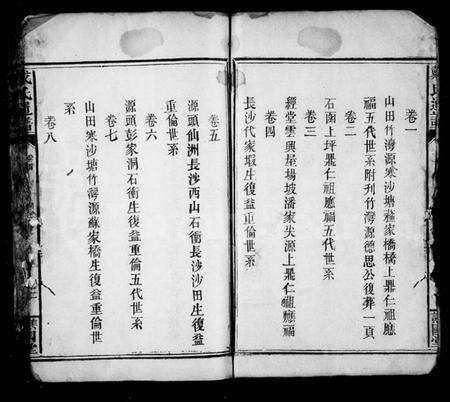 卷一
山田竹灣源寒沙塘蘇家橋橋上鼎仁祖應
福五代世系附刋竹灣源德思公復葬一頁
卷二
石函上坪鼎仁祖應福五代世系
卷三
經堂雲興屋場坡潘家失源上鼎仁 應福
卷四
長沙代家塅生復益重倫世系
卷五
源頭仙洲長沙西山石衝長沙沙田生復益
重倫世系
卷六
源頭彭家洞石衝生復益重倫五代世系
卷七
山田寒沙塘竹灣源蘇家橋生復益重倫世
系
卷八